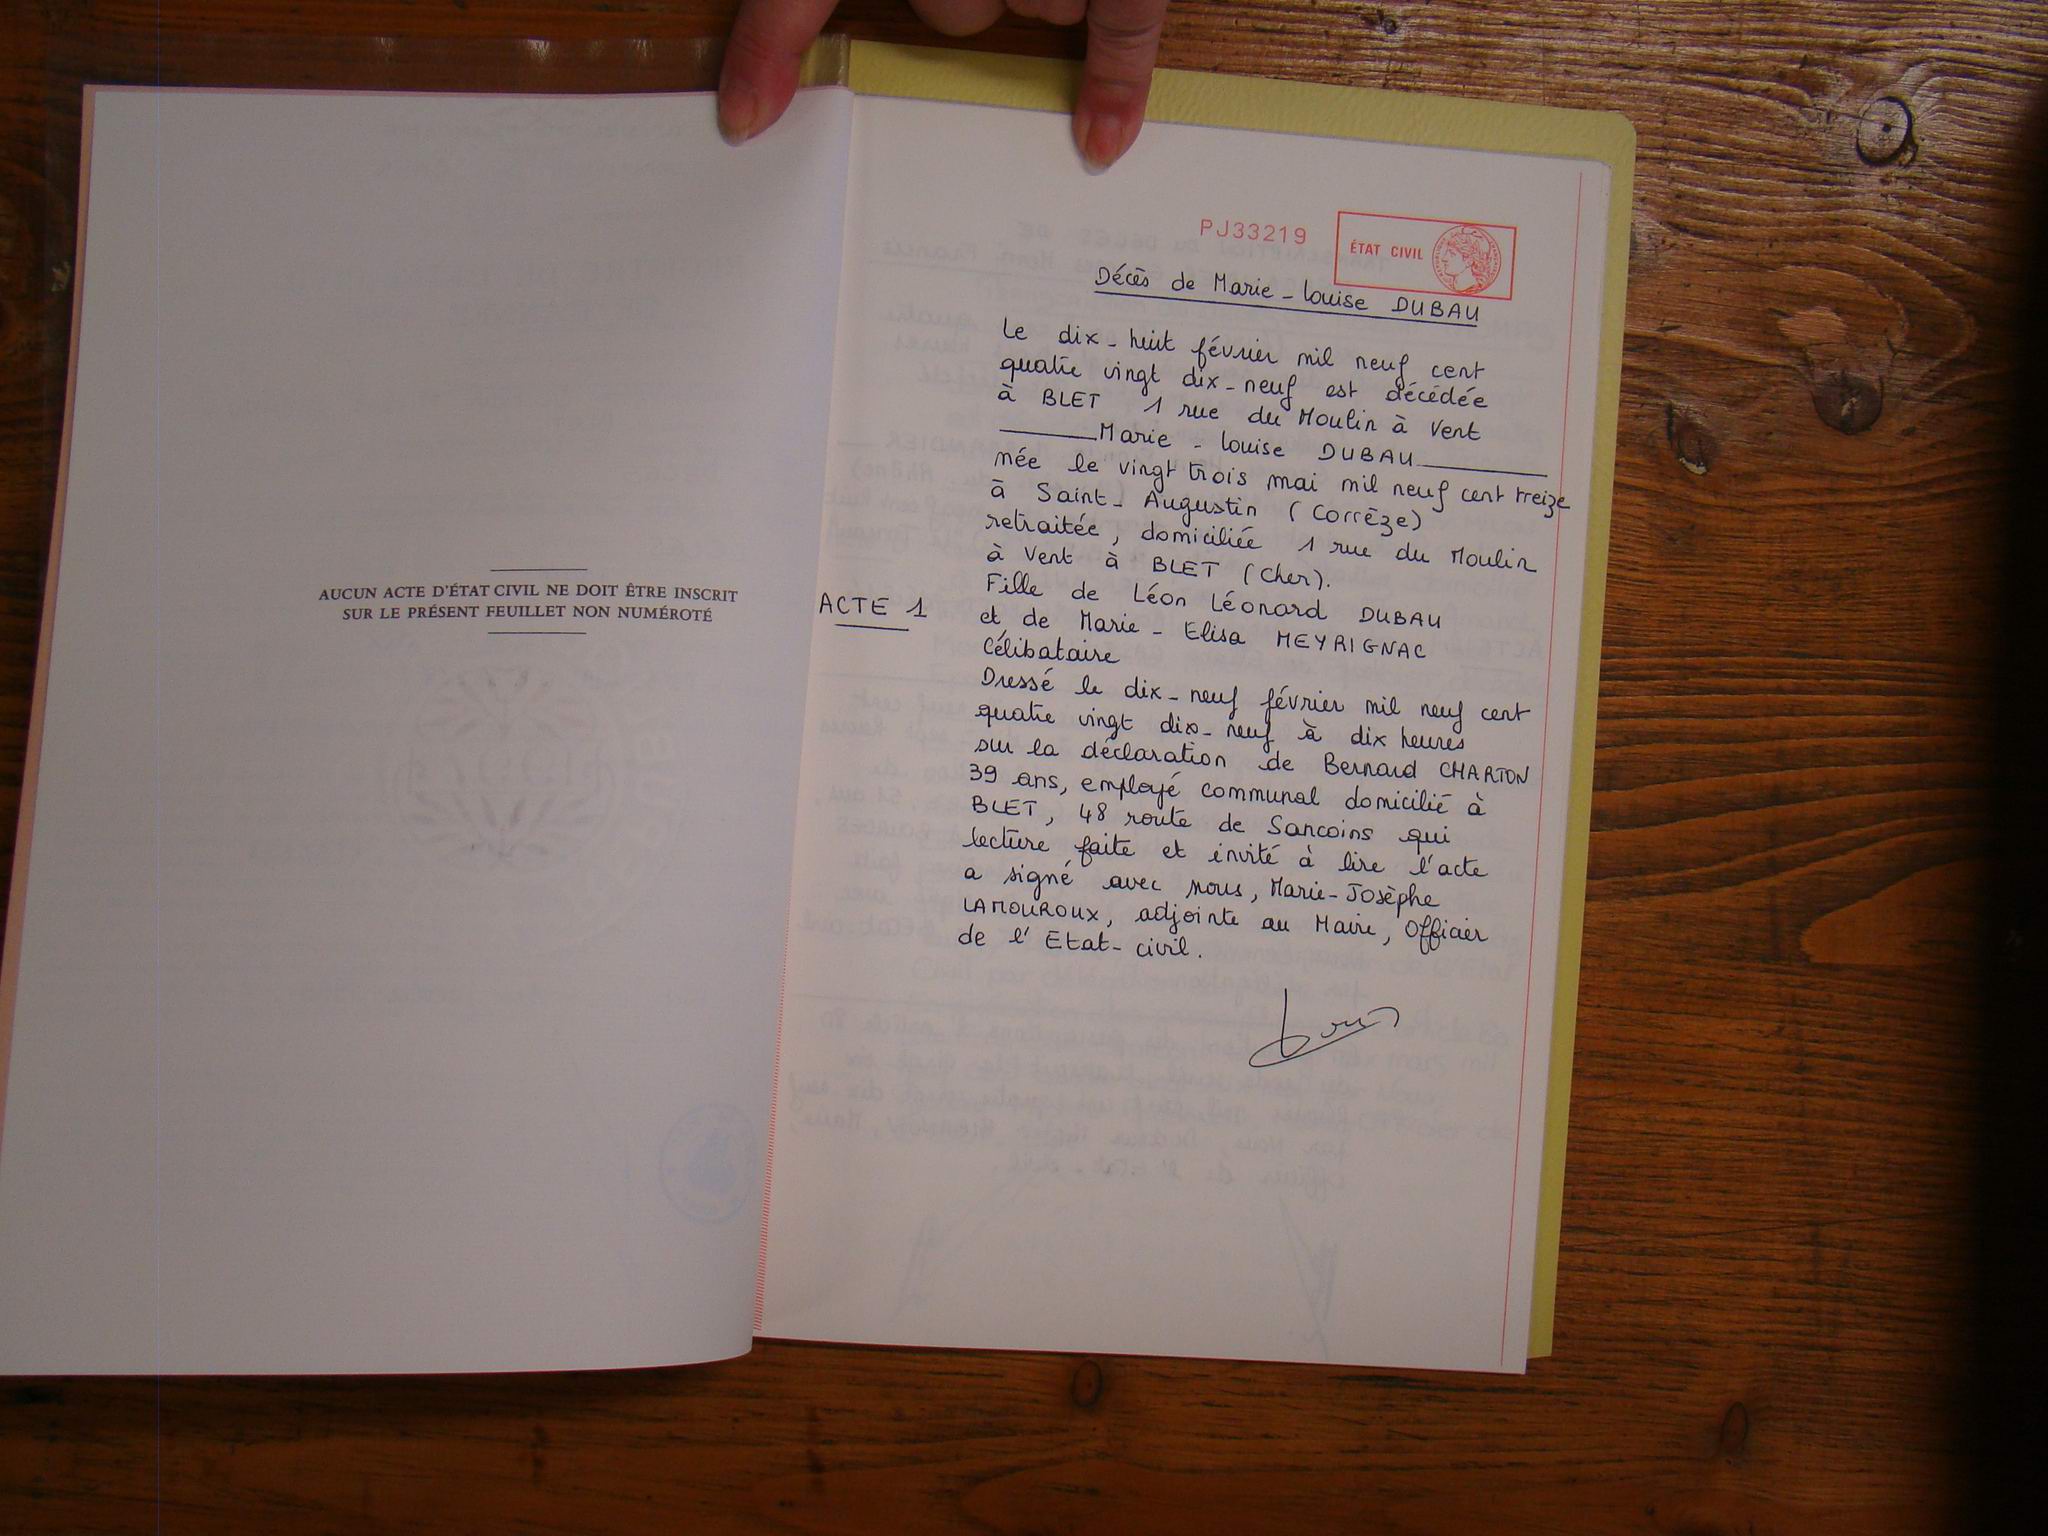 AUCUN ACTE D'ÉTAT CIVIL NE DOIT ÊTRE INSCRIT
SUR LE PRÉSENT FEUILLET NON NUMÉROTÉ
PJ33219
ÉTAT CIVIL
Décès de Marie-Louise DUBAU
Le dix-huit février mil neuf cent
quatre vingt dix-neuf est décédée
à BLET 1 rue du Moulin à Vent
Marie-Louise DUBAU
née le vingt trois mai mil neuf cent treize
à Saint-Augustin (Corrèze)
retraitée, domiciliée 1 rue du Moulin
à Vent à BLET (Cher).
Fille de Léon Léonard DUBAU
ACTE 1
et de Marie-Elisa MEYRIGNAC
Célibataire
Dressé le dix-neuf février mil neuf cent
quatre vingt dix-neuf à dix heures
sur la déclaration de Bernard CHARTON
39 ans, employé communal domicilié à
BLET, 48 route de Sancoins qui
lecture faite et invité à lire l'acte
a signé avec nous, Marie-Josèphe
LAMOUROUX, adjointe au Maire, Officier
de l'Etat-civil.